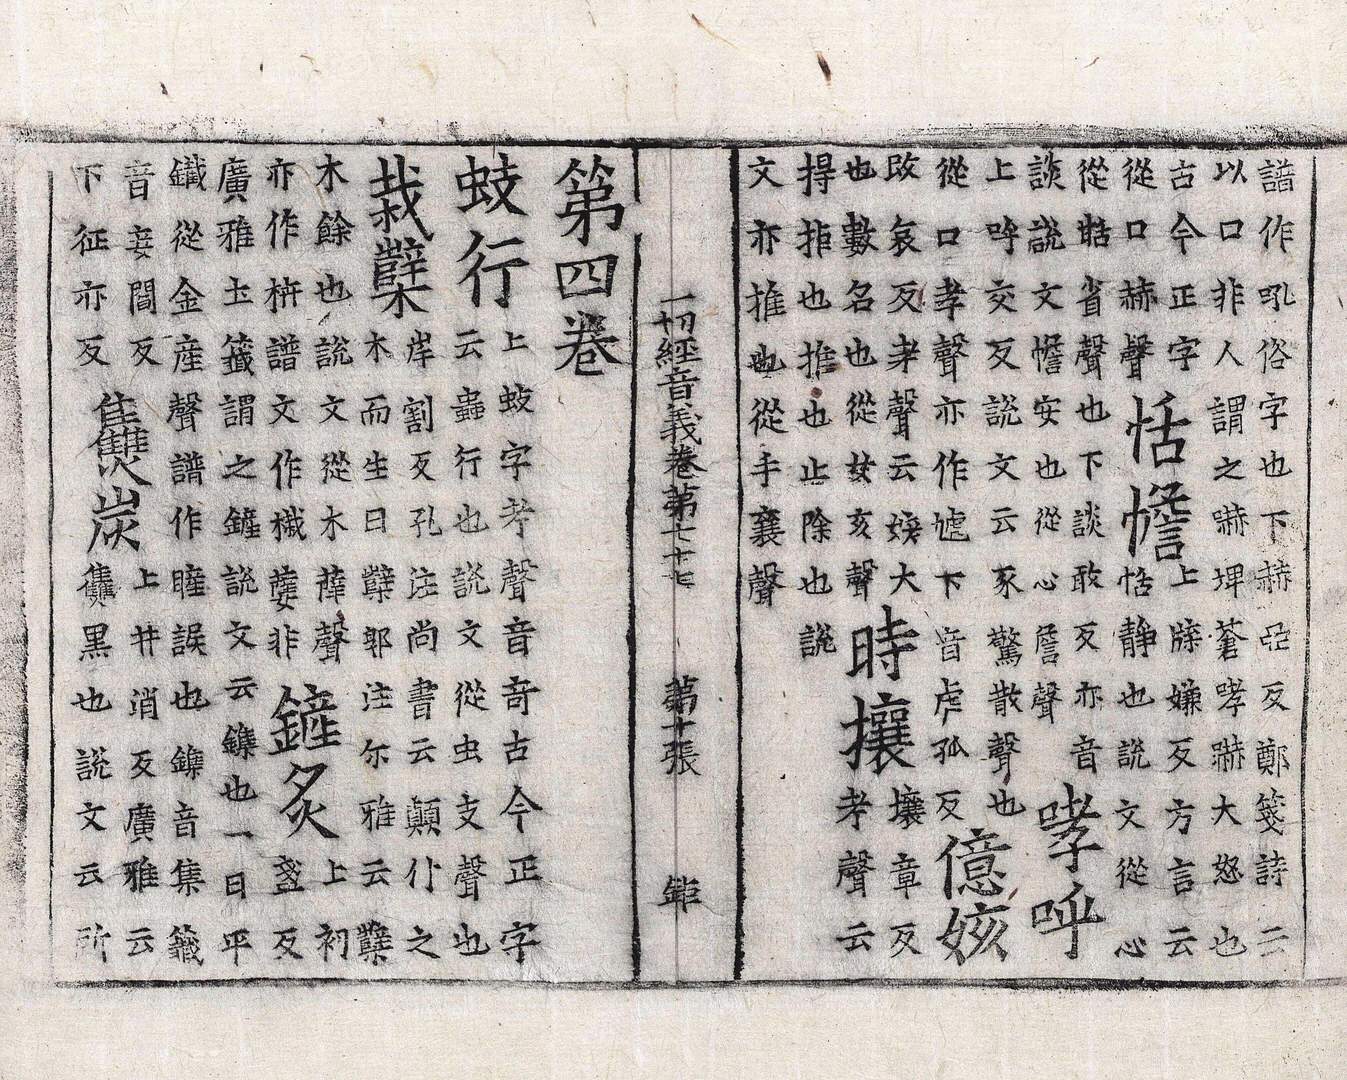 譜作吼俗字也下赫亞反鄭箋詩云
以口非人謂之嚇埤蒼哮嚇大怒也
古今正字 恬憺 上牒嫌反方言云
從口赫聲 恬靜也說文從心
從甛省聲也下談敢反亦音
談說文憺安也從心詹聲 哮呼
上呼交反說文云豕驚散聲也
從口孝聲亦作唬下音虖孤反 億姟
改哀反考聲云姟大
也數名也從女亥聲 時攘 壤章反
考聲云
揖拒也擔也止除也說
文亦推也從手襄聲
一切經音義卷第七十七 第十張 鉅
第四卷
蚑行 上蚑字考聲音奇古今正字
云蟲行也說文從虫支聲也
栽櫱 岸割反孔注尚書云顛仆之
木而生曰櫱郭注尔雅云櫱
木餘也說文從木薛聲 鏟炙 上初
亦作枿譜文作櫼蘖非 盞反
廣雅土籤謂之鏟說文云鏶也一曰平
鐵從金産聲譜作䁪誤也鏶音集籤
音妾閻反 雧炭 上井消反廣雅云
下征亦反 雧黑也說文云所